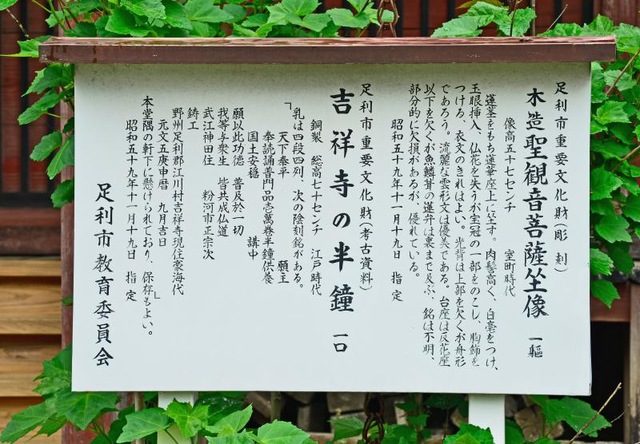 足利市重要文化財(彫刻)
木造聖観音菩薩坐像 一軀
像高五十七センチ 室町時代
蓮茎をもち蓮華座上に坐す。肉髻高く、白毫をつけ、
玉眼挿入、仏花を失うが宝冠の一部をのこし、胸飾を
つける。衣文のきれはよい。光背は上部を欠くが舟形
であろう。流麗な雲形文は優美である。台座は反花座
以下を欠くが魚鱗葺の蓮弁は裏まで及ぶ、銘は不明、
部分的に欠損があるが、優れている。
昭和五十九年十一月十九日 指定
足利市重要文化財(考古資料)
吉祥寺の半鐘 一口
銅製 総高七十センチ 江戸時代
乳は四段四列、次の陰刻銘がある。
「天下泰平 願主
奉読誦普門品壱萬巻半鐘供養
国土安穏 講中
願以此功徳 普及於一切
我等与衆生 皆共成仏道
武江神田住 粉河市正宗次
鋳工
野州足利郡江川村吉祥寺現住豪海代
元文五庚申暦 九月吉日」
本堂隅の軒下に懸けられており、保存もよい。
昭和五十九年十一月十九日 指定
足利市教育委員会